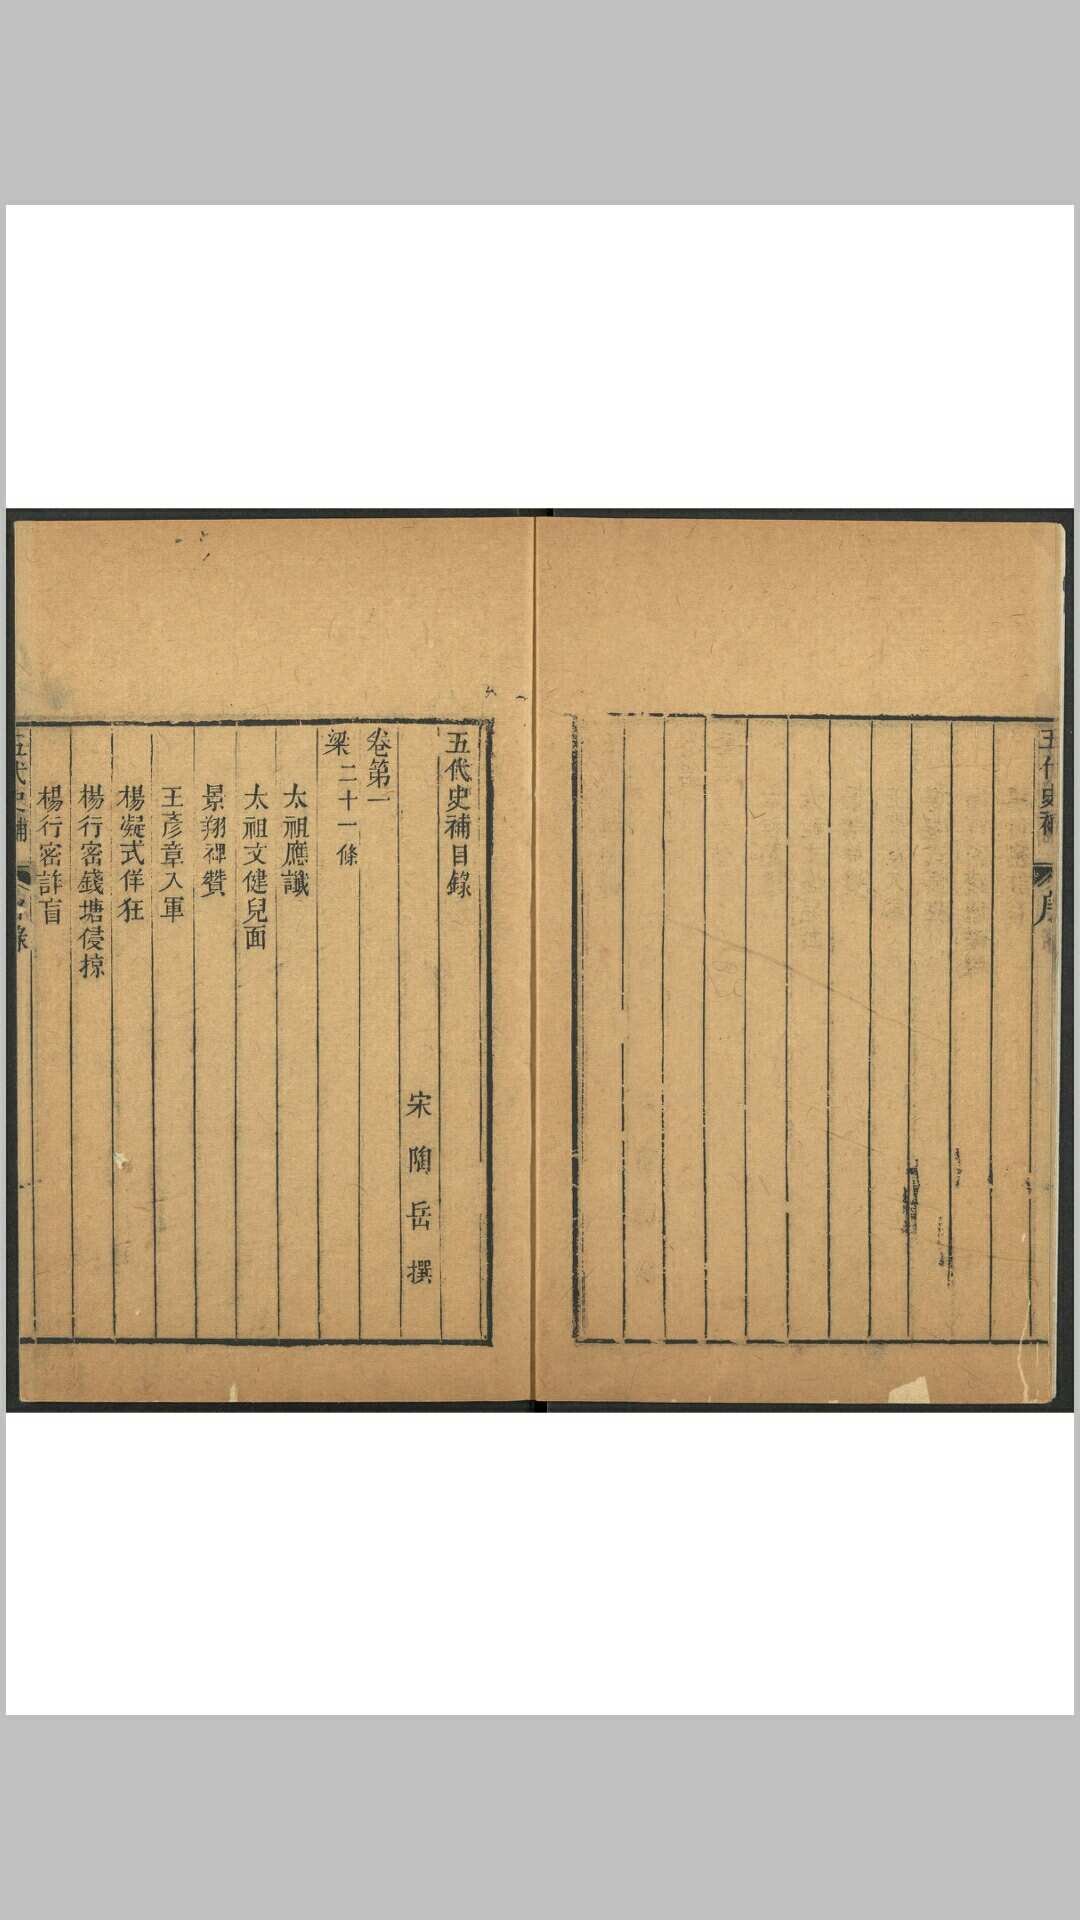 五代史補
序
五代史補目錄
宋陶岳撰
卷第一
梁二十一條
太祖應讖
太祖文健兒面
景翔裨贊
王彥章入軍
楊凝式佯狂
楊行密錢塘侵掠
楊行密詐盲
五代史補
目錄